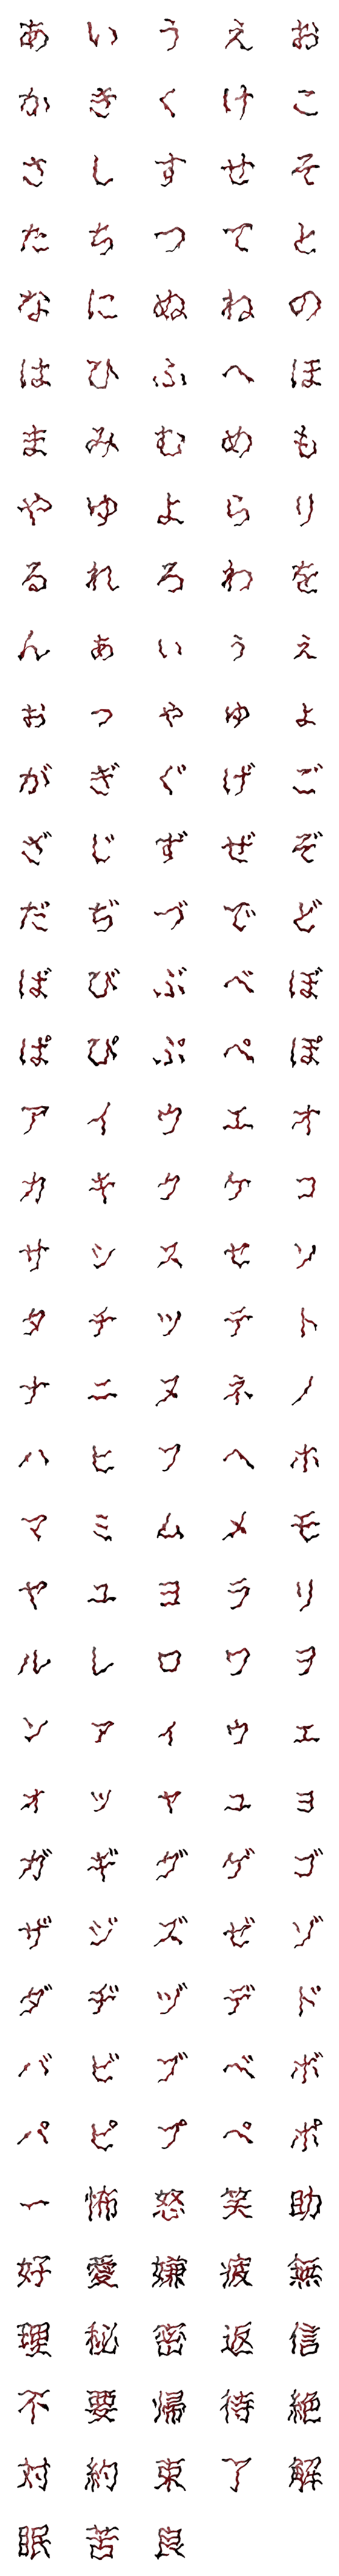 あ い う え お
か き く け こ
さ し す せ そ
た ち つ て と
な に ぬ ね の
は ひ ふ へ ほ
ま み む め も
や ゆ よ ら り
る れ ろ わ を
ん ぁ ぃ ぅ ぇ
ぉ っ ゃ ゅ ょ
が ぎ ぐ げ ご
ざ じ ず ぜ ぞ
だ ぢ づ で ど
ば び ぶ べ ぼ
ぱ ぴ ぷ ぺ ぽ
ア イ ウ エ オ
カ キ ク ケ コ
サ シ ス セ ソ
タ チ ツ テ ト
ナ ニ ヌ ネ ノ
ハ ヒ フ ヘ ホ
マ ミ ム メ モ
ヤ ユ ヨ ラ リ
ル レ ロ ワ ヲ
ン ァ ィ ゥ ェ
ォ ッ ャ ュ ョ
ガ ギ グ ゲ ゴ
ザ ジ ズ ゼ ゾ
ダ ヂ ヅ デ ド
バ ビ ブ ベ ボ
パ ピ プ ペ ポ
ー 怖 怒 笑 助
好 愛 嫌 疲 無
理 秘 密 返 信
不 要 帰 待 絶
対 約 束 了 解
眠 苦 良